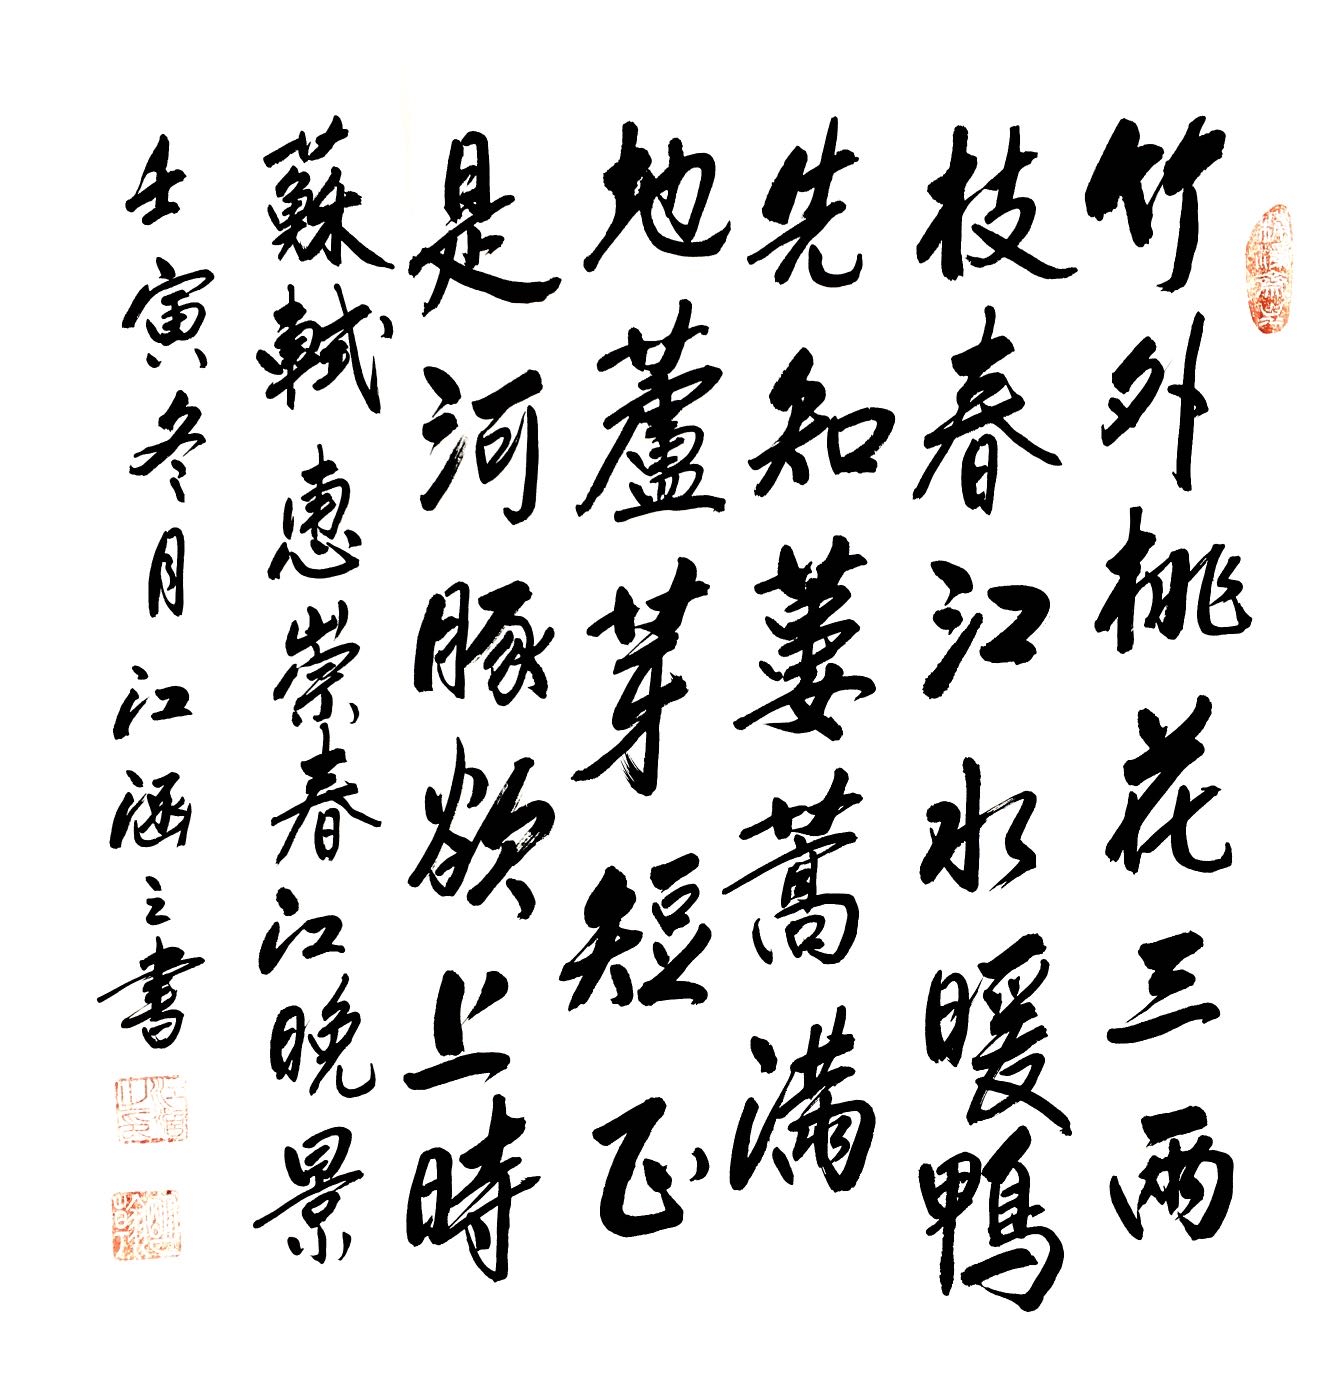 竹外桃花三兩
枝春江水暖鴨
先知蔞蒿滿
地蘆芽短正
是河豚欲上時
蘇軾惠崇春江晚景
壬寅冬月江涵之書